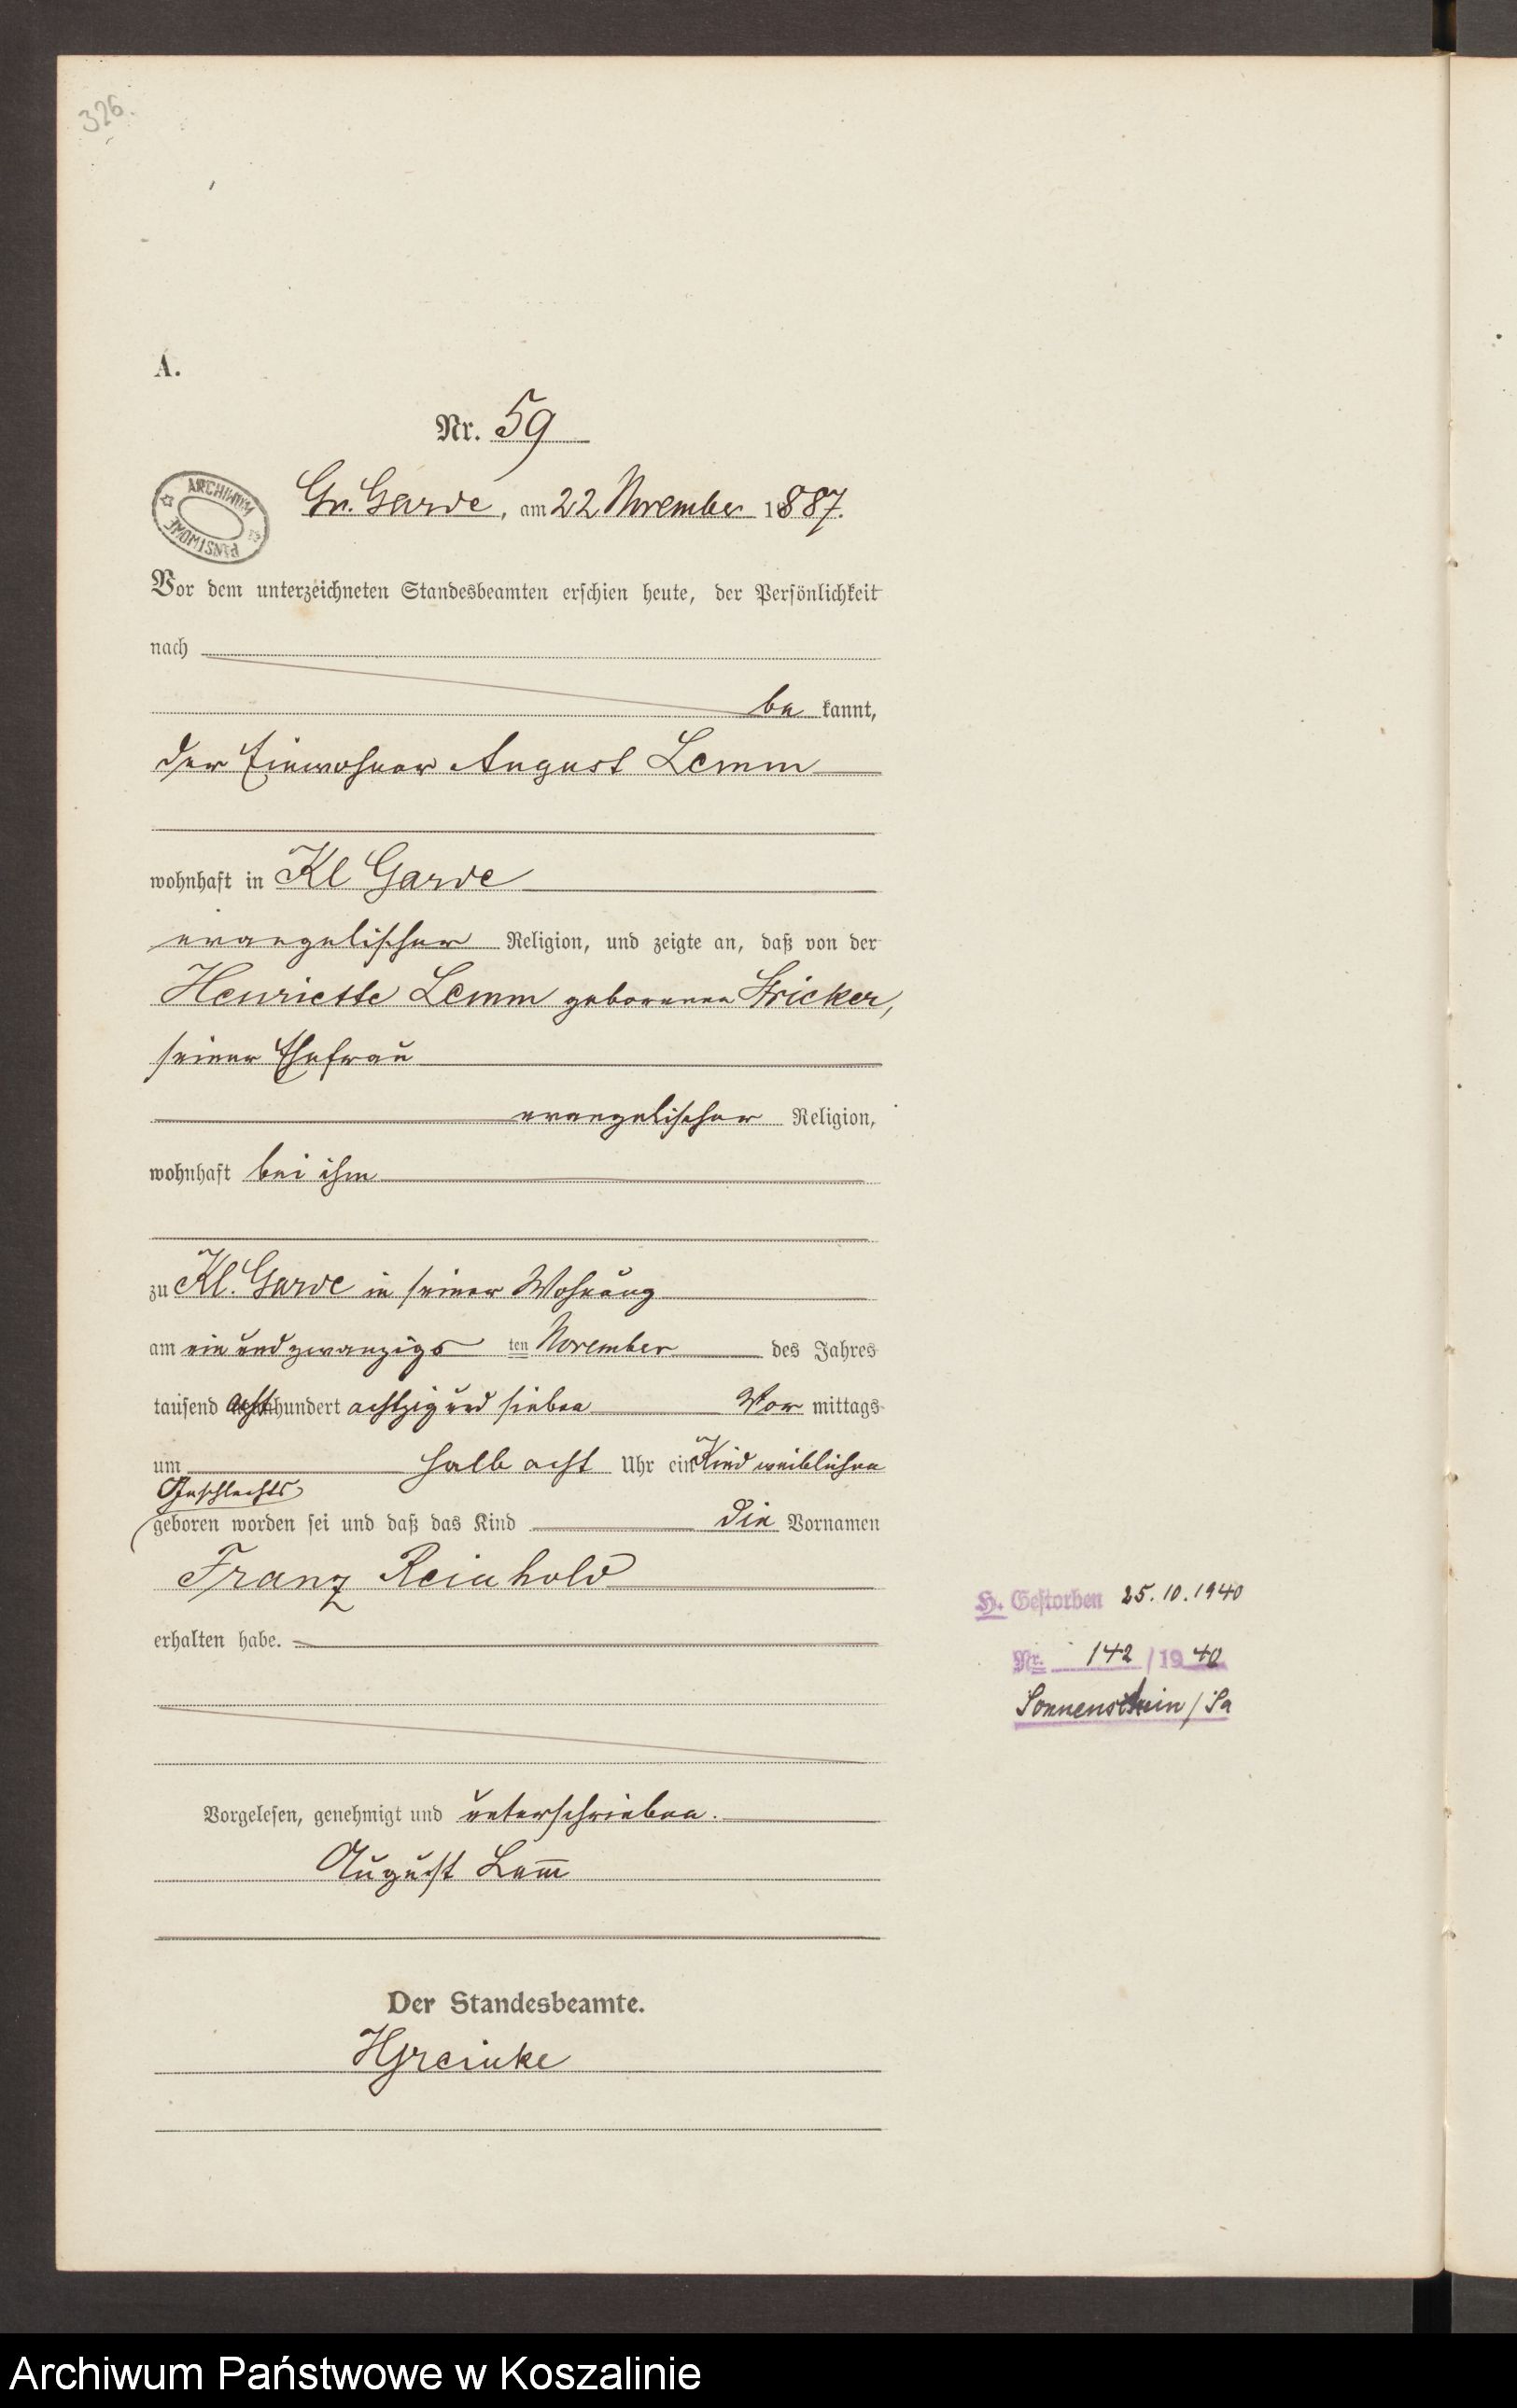 326.
A.
Nr. 59
ARCHIWUM PAŃSTWOWE
Gr. Garde, am 22 November 1887.
Vor dem unterzeichneten Standesbeamten erschien heute, der Persönlichkeit
nach
be kannt,
der Einwohner August Lemm
wohnhaft in Kl Garde
evangelischer Religion, und zeigte an, daß von der
Henriette Lemm geborenen Stricker,
seiner Ehefrau
evangelischer Religion,
wohnhaft bei ihm
zu Kl. Garde in seiner Wohnung
am ein und zwanzigs ten November des Jahres
tausend acht hundert achtzig und sieben Vor mittags
um halb acht Uhr ein Kind weiblichen
Geschlechts
geboren worden sei und daß das Kind die Vornamen
Franz Reinhold
erhalten habe.
H. Gestorben 25.10.1940
Nr. 142 / 1940
Sonnenstein / Sa
Vorgelesen, genehmigt und unterschrieben.
August Lem̅
Der Standesbeamte.
Archiwum Państwowe w Koszalinie